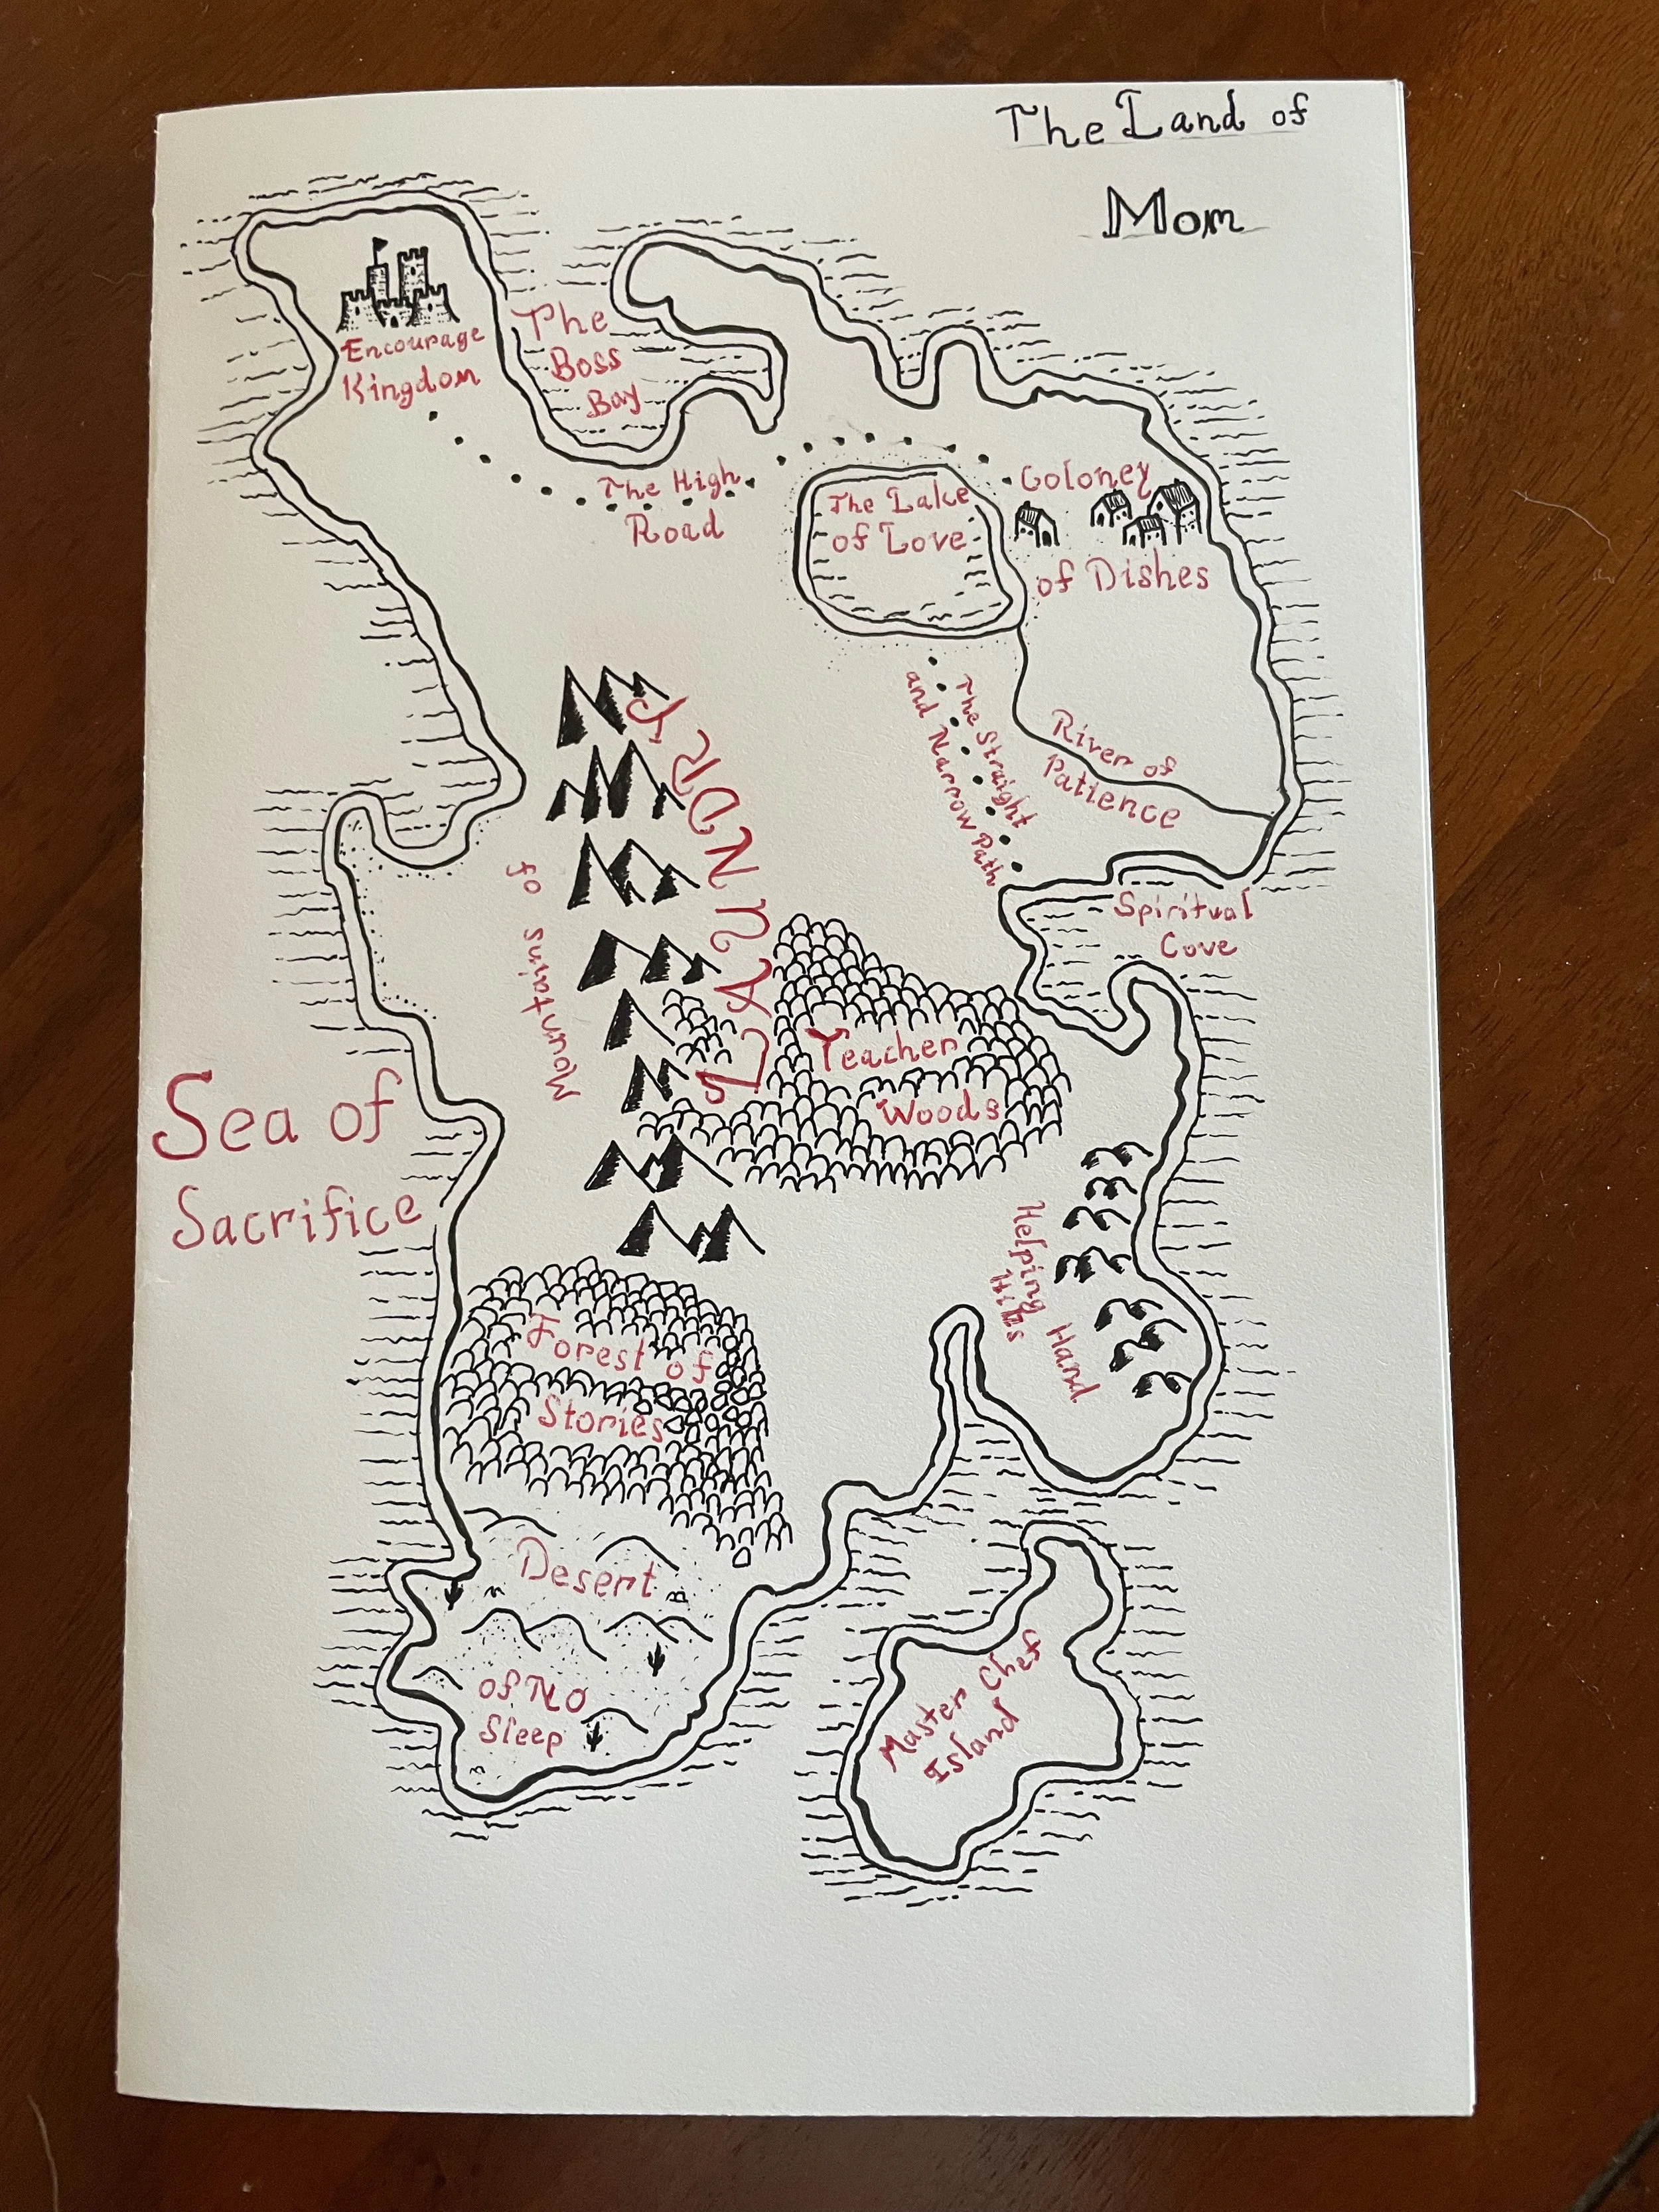 The Land of
Mom
Encourage
Kingdom
The
Boss
Bay
The High
Road
The Lake
of Love
Coloney
of Dishes
The Straight
and Narrow Path
River of
Patience
Spiritual
Cove
Mountains of
LAUNDRY
Teacher
Woods
Sea of
Sacrifice
Helping Hand
Hills
Forest of
Stories
Desert
of No
Sleep
Master Chef
Island